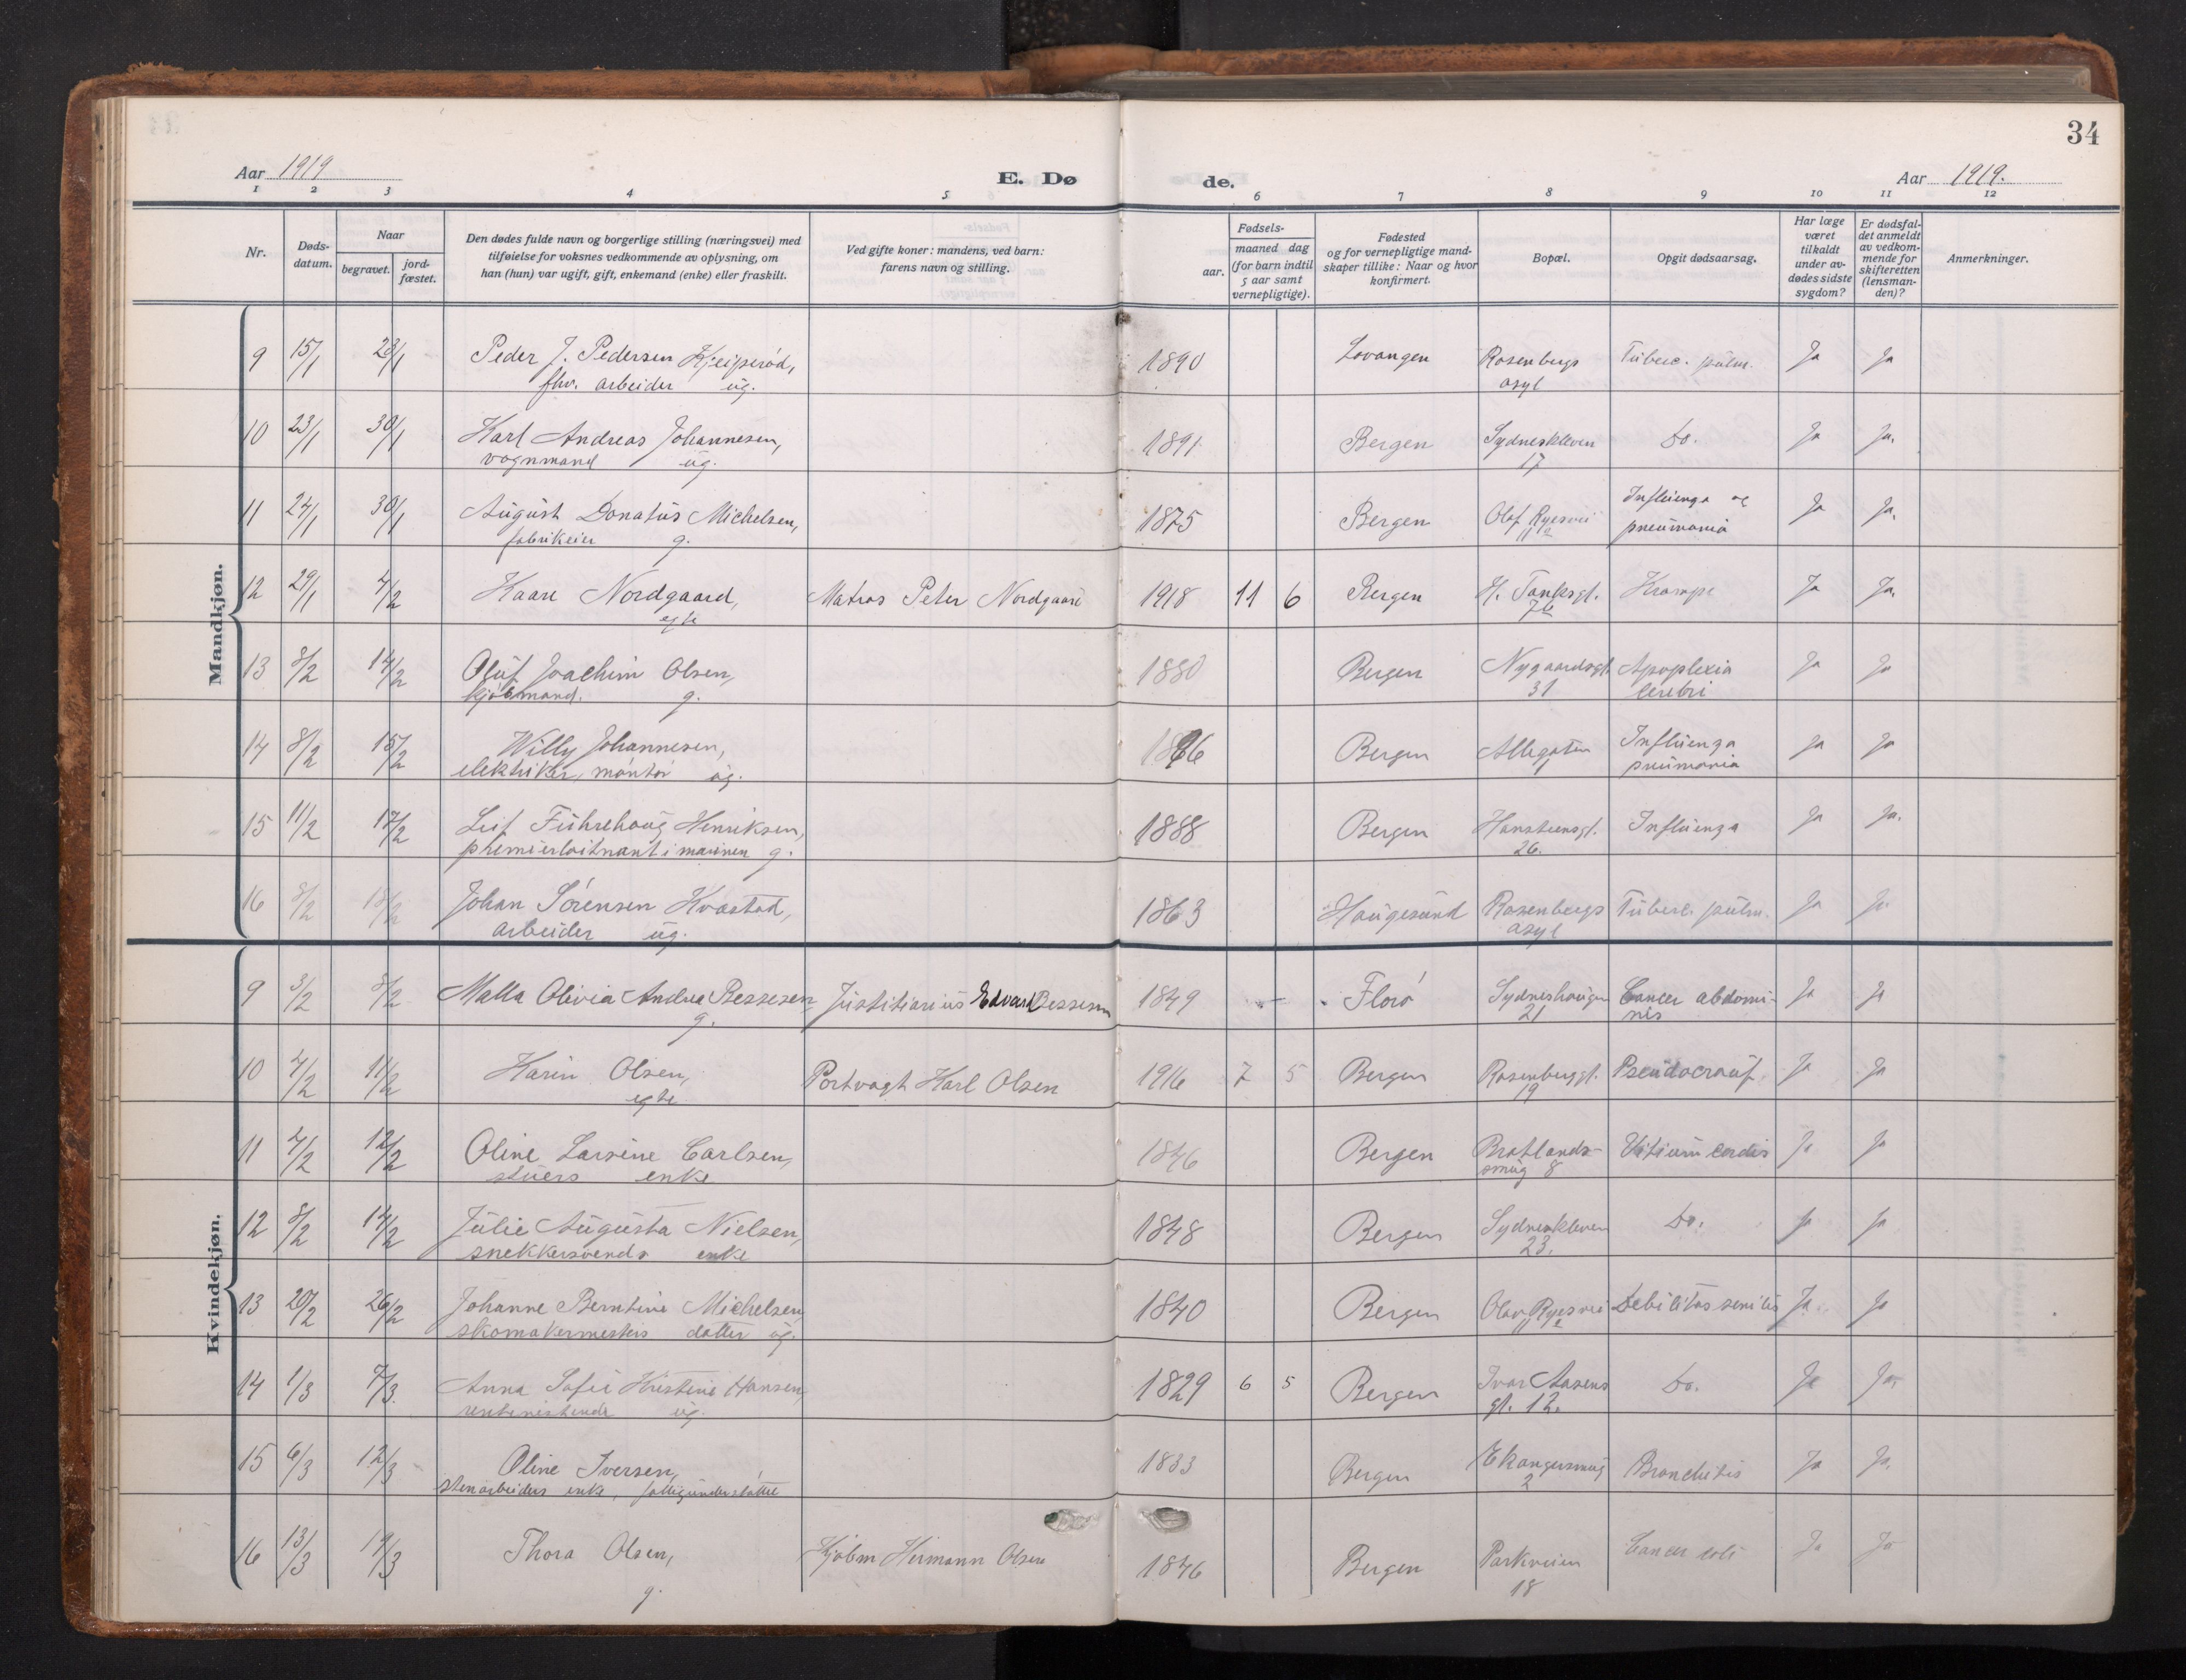 34
Aar 1919
E. Dø
de.
Aar 1919.
1 2 3 4 5 6 7 8 9 10 11 12
Nr.
Døds-
datum.
Naar
begravet.
jord-
fæstet.
Den dødes fulde navn og borgerlige stilling (næringsvei) med
tilføielse for voksnes vedkommende av oplysning, om
han (hun) var ugift, gift, enkemand (enke) eller fraskilt.
Ved gifte koner: mandens, ved barn:
farens navn og stilling.
Fødsels-
aar.
maaned dag
(for barn indtil
5 aar samt
vernepligtige).
Fødested
og for vernepligtige mand-
skaper tillike: Naar og hvor
konfirmert.
Bopæl.
Opgit dødsaarsag.
Har læge
været
tilkaldt
under av-
dødes sidste
sygdom?
Er dødsfal-
det anmeldt
av vedkom-
mende for
skifteretten
(lensman-
den)?
Anmerkninger.
Mandkjøn.
9 15/1 23/1 Peder J. Pedersen 1890 Lavangen Rosenbergs Tuberc. pulm. Ja Ja
fhv. arbeider ug. asyl
10 23/1 30/1 Karl Andreas Johannesen, 1891 Bergen Sydneskleven Do. Ja Ja.
vognmand ug. 17
11 24/1 30/1 August Donatus Michelsen, 1875 Bergen Olaf Ryesvei Influenza og Ja Ja.
fabrikeier g. 11a pneumonia
12 29/1 4/2 Kaare Nordgaard, Matros Peter Nordgaard 1918 11 6 Bergen H. Tanksgt. Krampe Ja Ja.
egte 7b
13 8/2 14/2 Oluf Joachim Olsen, 1880 Bergen Nygaardsgt. Apoplexia Ja Ja
kjøbmand. g. 31 cerebri
14 8/2 15/2 Willy Johannesen, Bergen Allegaten Influenza Ja Ja
elektriker, montør ug. 1 pneumonia
15 11/2 17/2 Leif Führehoug Henriksen, 1888 Bergen Hansteensgt. Influenza Ja Ja.
premierløitnant i marinen g. 26.
16 8/2 18/2 Johan Sørensen Kvastad, 1863 Haugesund Rosenbergs Tuberc. pulm. Ja Ja
arbeider ug. asyl
Kvindekjøn.
9 3/2 8/2 Malla Olivia Andrea Bessesen, Justitiarius Edvard Bessesen 1849 Florø Sydneshaugen Cancer abdomi- Ja Ja
g. 21 nis
10 4/2 11/2 Karin Olsen, Portvagt Karl Olsen 1916 7 5 Bergen Rosenberggt. Pseudocroup Ja Ja
egte 19
11 4/2 12/2 Oline Larsine Carlsen, 1846 Bergen Bratlands- Vitium cordis Ja Ja
stuers enke smug 8
12 8/2 14/2 Julie Augusta Nielsen, 1848 Bergen Sydneskleven Do. Ja Ja
snekkersvends enke 23.
13 20/2 26/2 Johanne Berntine Michelsen, 1840 Bergen Olav Ryesvei Debilitas senilis Ja. Ja
skomakermesters datter ug. 11a
14 1/3 7/3. Anna Sofie Kristine Hansen, 1829 6 5 Bergen Ivar Aasens Do. Ja Ja
rentenistinde ug. gt. 12.
15 6/3 12/3 Oline Iversen, 1833 Bergen Ekangersmug Bronchitis Ja Ja.
stenarbeiders enke, fattigunderstøttet 2
16 13/3 19/3 Thora Olsen, Kjøbm Hermann Olsen 1846 Bergen Parkveien Cancer coli Ja Ja
g. 18